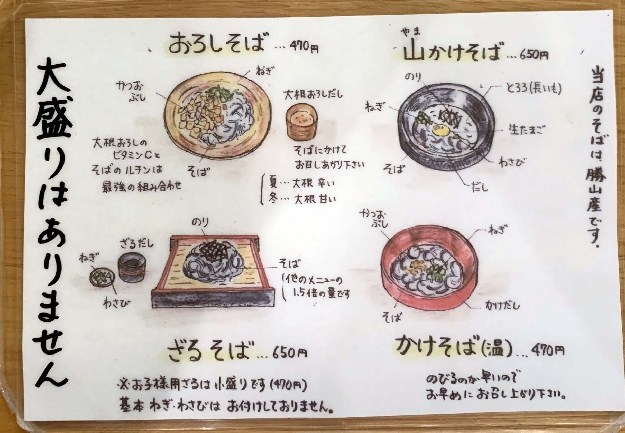 大盛りはありません
おろしそば…470円
かつおぶし
ねぎ
大根おろしだし
大根おろしの
ビタミンCと
そばのルチンは
最強の組み合わせ
そば
そばにかけて
お召しあがり下さい
夏…大根 辛い
冬…大根 甘い
やま
山かけそば…650円
のり
とろろ(長いも)
ねぎ
生たまご
わさび
そば
だし
当店のそばは、勝山産です.
のり
ざるだし
ねぎ
わさび
そば
他のメニューの
1.5倍の量です
ざるそば…650円
※お子様用ざるは小盛りです(470円)
基本 ねぎ・わさびは お付けしておりません。
かつおぶし
ねぎ
そば
かけだし
かけそば(温)…470円
のびるのが早いので
お早めにお召し上がり下さい。